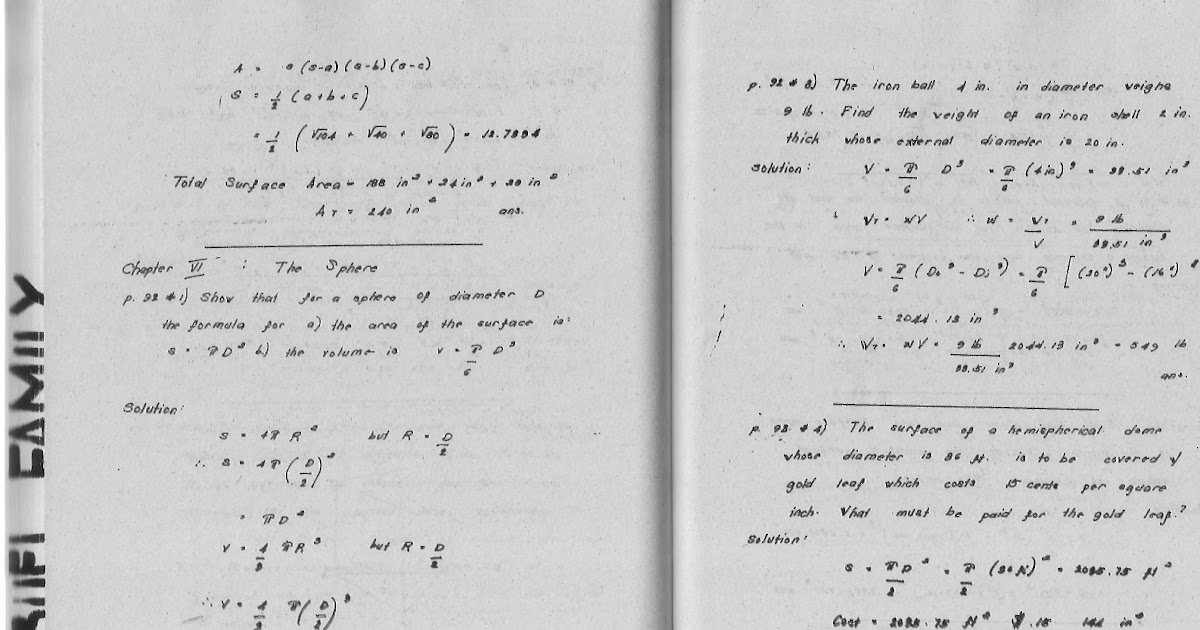 A = s (s-a) (s-b) (s-c)
S = 1/2 (a+b+c)
= 1/2 (√104 + √40 + √80) = 12.7994
Total Surface Area = 188 in² + 24 in² + 28 in²
A T = 240 in² ans.
Chapter VI : The Sphere
p. 92 # 1) Show that for a sphere of diameter D
the formula for a) the area of the surface is:
s = πD² b) the volume is v = π/6 D³
Solution:
S = 4π R² but R = D/2
∴ S = 4π (D/2)²
= πD²
V = 4/3 πR³ but R = D/2
∴ V = 4/3 π(D/2)³
p. 92 # 3) The iron ball 4 in. in diameter weighs
9 lb. Find the weight of an iron shell 2 in.
thick whose external diameter is 20 in.
Solution: V = π/6 D³ = π/6 (4in)³ = 33.51 in³
WT = WV ∴ W = WT/V = 9 lb/33.51 in³
V = π/6 (Do³ - Di³) = π/6 [(20")³ - (16")³
= 2044.13 in³
∴ WT = WV = 9 lb/33.51 in³ 2044.13 in³ = 549 lb
ans.
p. 92 # 4) The surface of a hemispherical dome
whose diameter is 36 ft. is to be covered w/
gold leaf which costs 15 cents per square
inch. What must be paid for the gold leaf?
Solution:
S = π/2 D² = π/2 (36 ft)² = 2035.75 ft²
Cost = 2035.75 ft² $.15 144 in²
FAMILY